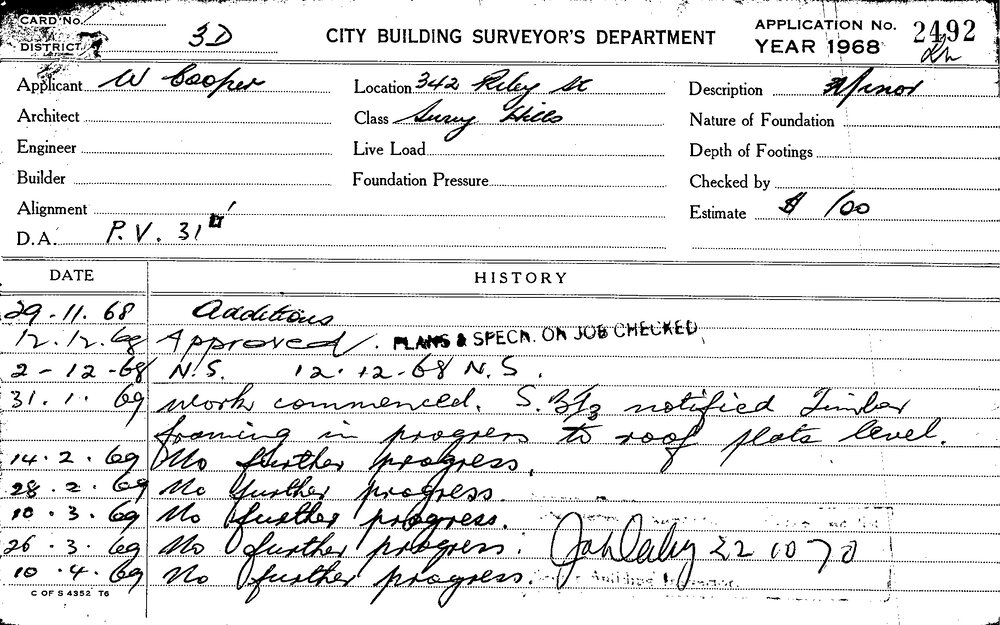 CARD No.
DISTRICT 3D
CITY BUILDING SURVEYOR'S DEPARTMENT
APPLICATION No. 2492
YEAR 1968
Applicant W Cooper Location 342 Riley St Description Minor
Architect Class Surry Hills Nature of Foundation
Engineer Live Load Depth of Footings
Builder Foundation Pressure Checked by
Alignment Estimate $ 100
D.A. P.V. 31
DATE HISTORY
29.11.68 Additions
12.12.68 Approved. PLANS & SPECN. ON JOB CHECKED
2-12-68 N.S. 12.12.68 N.S.
31.1.69 Work commenced. notified Timber
framing in progress to roof plate level.
14.2.69 No further progress.
28.2.69 No further progress.
10.3.69 No further progress.
26.3.69 No further progress. 22 10 70
10.4.69 No further progress.
C OF S 4352 T6